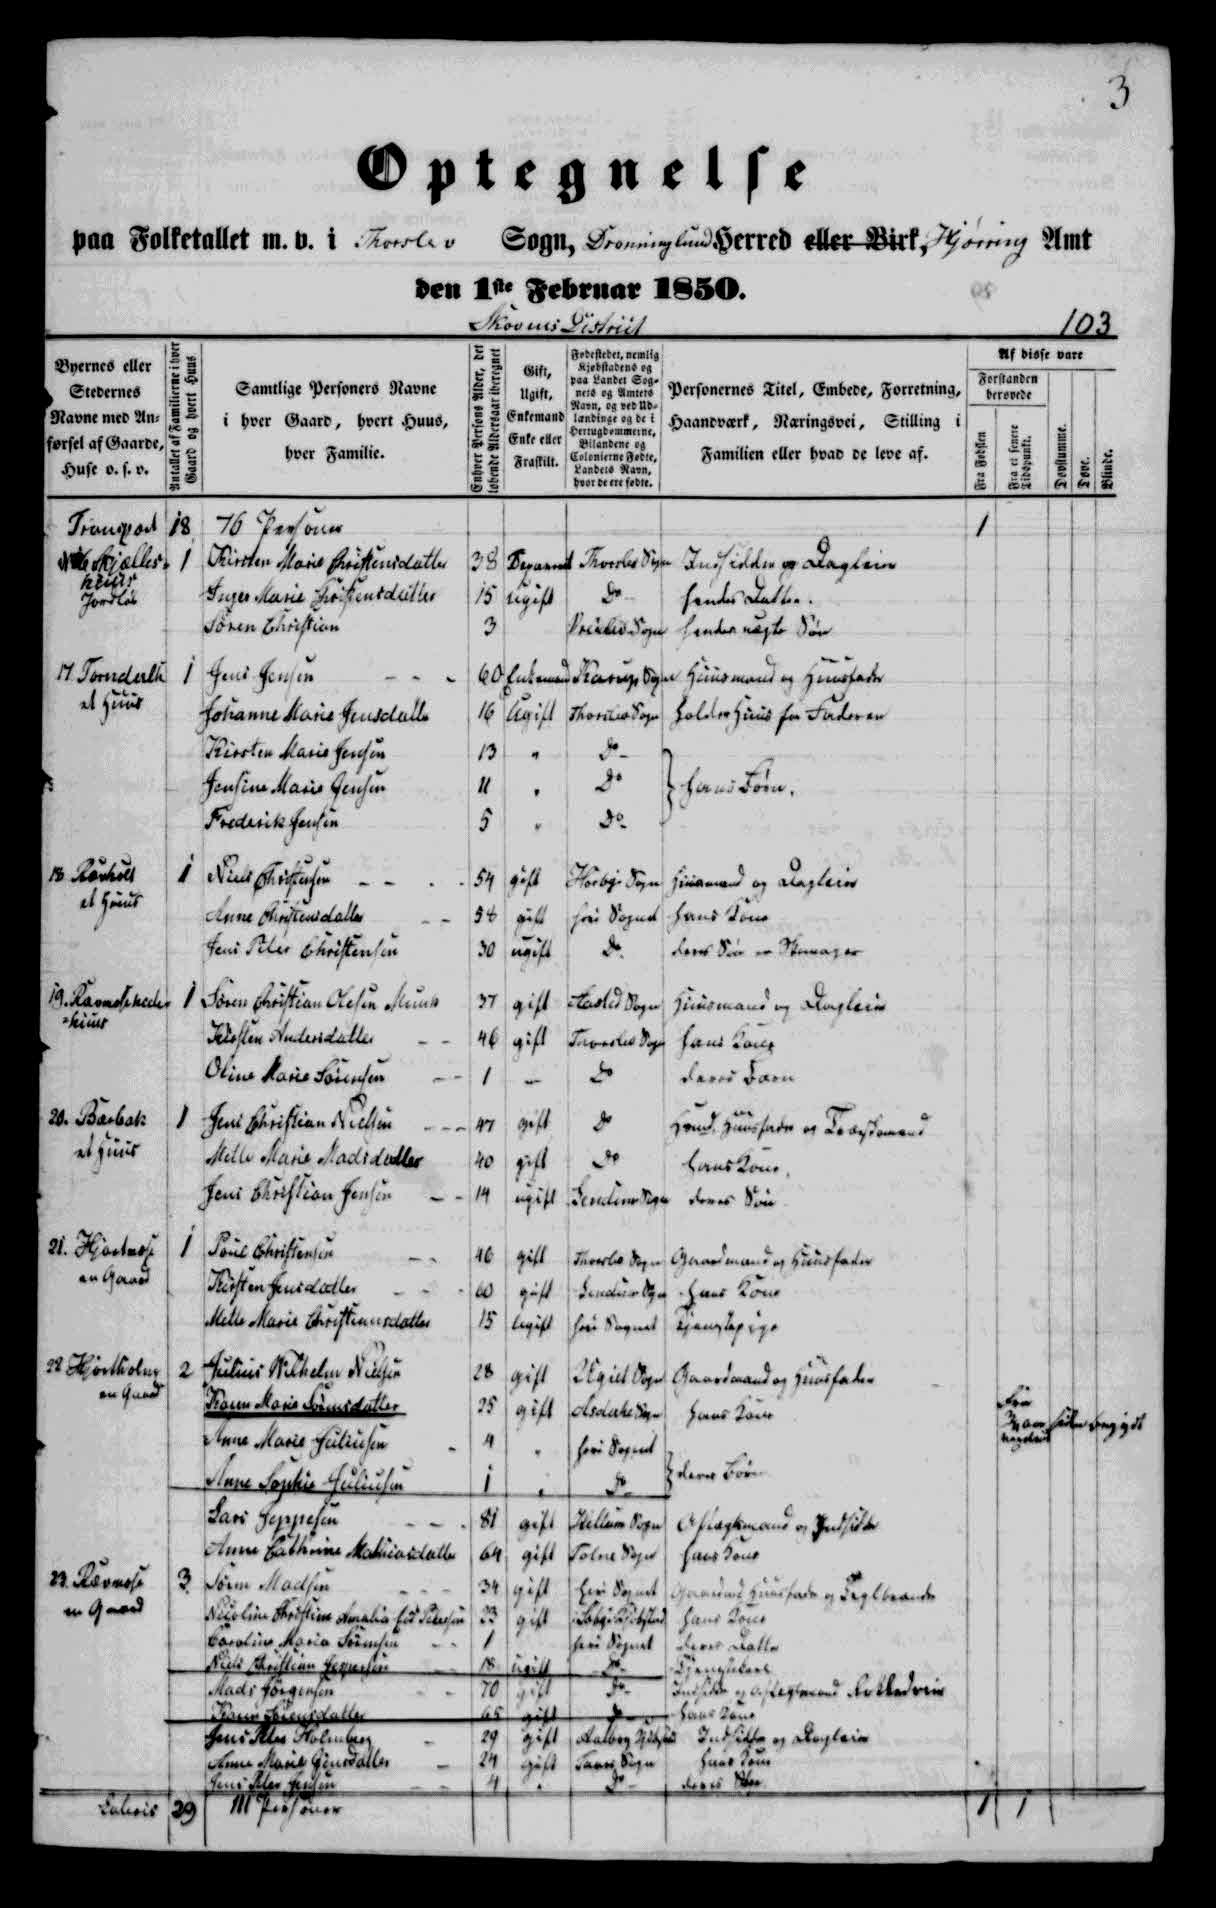 3
Optegnelse
paa Folketallet m. v. i Thorslev Sogn, Dronninglund Herred eller Birk, Hjørring Amt
den 1ste Februar 1850.
Skovens District
103
Byernes eller Stedernes Navne med Anførsel af Gaarde, Huse o. s. v.
Antallet af Familierne i hver Gaard og hvert Huus
Samtlige Personers Navne i hver Gaard, hvert Huus, hver Familie.
Enhver Persons Alder, det løbende Aldersaar iberegnet
Gift, Ugift, Enkemand Enke eller Fraskilt.
Fødestedet, nemlig Kjøbstadens og paa Landet Sognets og Amtets Navn, og ved Udlændinge og de i Hertugdømmerne, Bilandene og Colonierne Fødte, Landets Navn, hvor de ere fødte.
Personernes Titel, Embede, Forretning, Haandværk, Næringsvei, Stilling i Familien eller hvad de leve af.
Af disse vare
Forstanden berøvede
Fra Fødslen
Fra et senere Tidspunkt.
Døvstumme.
Døve.
Blinde.
Transport 18 76 Personer 1
huus 1 Kirsten Marie Christensdatter 38 Thorslev Sogn Indsidder og Dagleier
Inger Marie Christensdatter 15 ugift Do hendes Datter.
Søren Christian 3 Sogn hendes uægte Søn
17. et Huus 1 Jens Jensen 60 Enkemand Karup Sogn Huusmand og Huusfader
Johanne Marie Jensdatter 16 Ugift Thorslev Sogn holder Huus for Faderen
Kirsten Marie Jensen 13 " Do
Jensine Marie Jensen 11 " Do } hans Børn.
Frederik Jensen 5 " Do
18 et Huus 1 Niels Christensen 54 gift Hørbye Sogn Huusmand og Dagleier
Anne Christensdatter 58 gift her i Sognet hans Kone
Jens Peter Christensen 30 ugift Do deres Søn er Skomager
19. huus 1 Søren Christian Olesen Munk 37 gift Aasted Sogn Huusmand og Dagleier
Kirsten Andersdatter 46 gift Thorslev Sogn hans Kone
Oline Marie Sørensen 1 - Do deres Barn
20. Bærbak et Huus 1 Jens Christian Nielsen 47 gift Do Huusfader og Træskomand
Mette Marie Madsdatter 40 gift Do hans Kone.
Jens Christian Jensen 14 ugift Gendrum Sogn deres Søn
21. Hjortmose en Gaard 1 Poul Christensen 46 gift Thorslev Sogn Gaardmand og Huusfader
Kirsten Jensdatter 60 gift Gendrum Sogn hans Kone
Mette Marie Christiansdatter 15 Ugift her i Sognet Tjenestepige
22 Hjortholm en Gaard 2 Julius Wilhelm Nielsen 28 gift Sogn Gaardmand og Huusfader
Karen Marie Sørensdatter 25 gift Asdahl Sogn hans Kone
Anne Marie Juliusen 4 " her i Sognet
Anne Sophie Juliusen 1 " Do } deres Børn
Lars Jeppesen 81 gift Hellum Sogn Aftægtsmand og Indsidder
Anne Cathrine Mathiasdatter 64 gift Tolne Sogn hans Kone
23. Rævmose en Gaard 3 Søren Madsen 34 gift her i Sognet Gaardmd Huusfader og Teglbrænder
Nicoline Christine Amalia Petersen 23 gift Sæby Kjøbstad hans Kone
Caroline Maria Sørensen 1 her i Sognet deres Datter
Niels Christian Jeppesen 18 ugift Do Tjenestekarl
Mads Jørgensen 70 gift Do Indsidder og Aftægtsmand
Karen Sørensdatter 65 gift Do hans Kone
Jens Peter Holmberg 29 gift Aalborg Kjøbstad Indsidder og Dagleier
Anne Marie Jensdatter 24 gift Taars Sogn hans Kone
Jens Peter Jensen 4 " Do deres Søn
Lateris 29 111 Personer 1 1